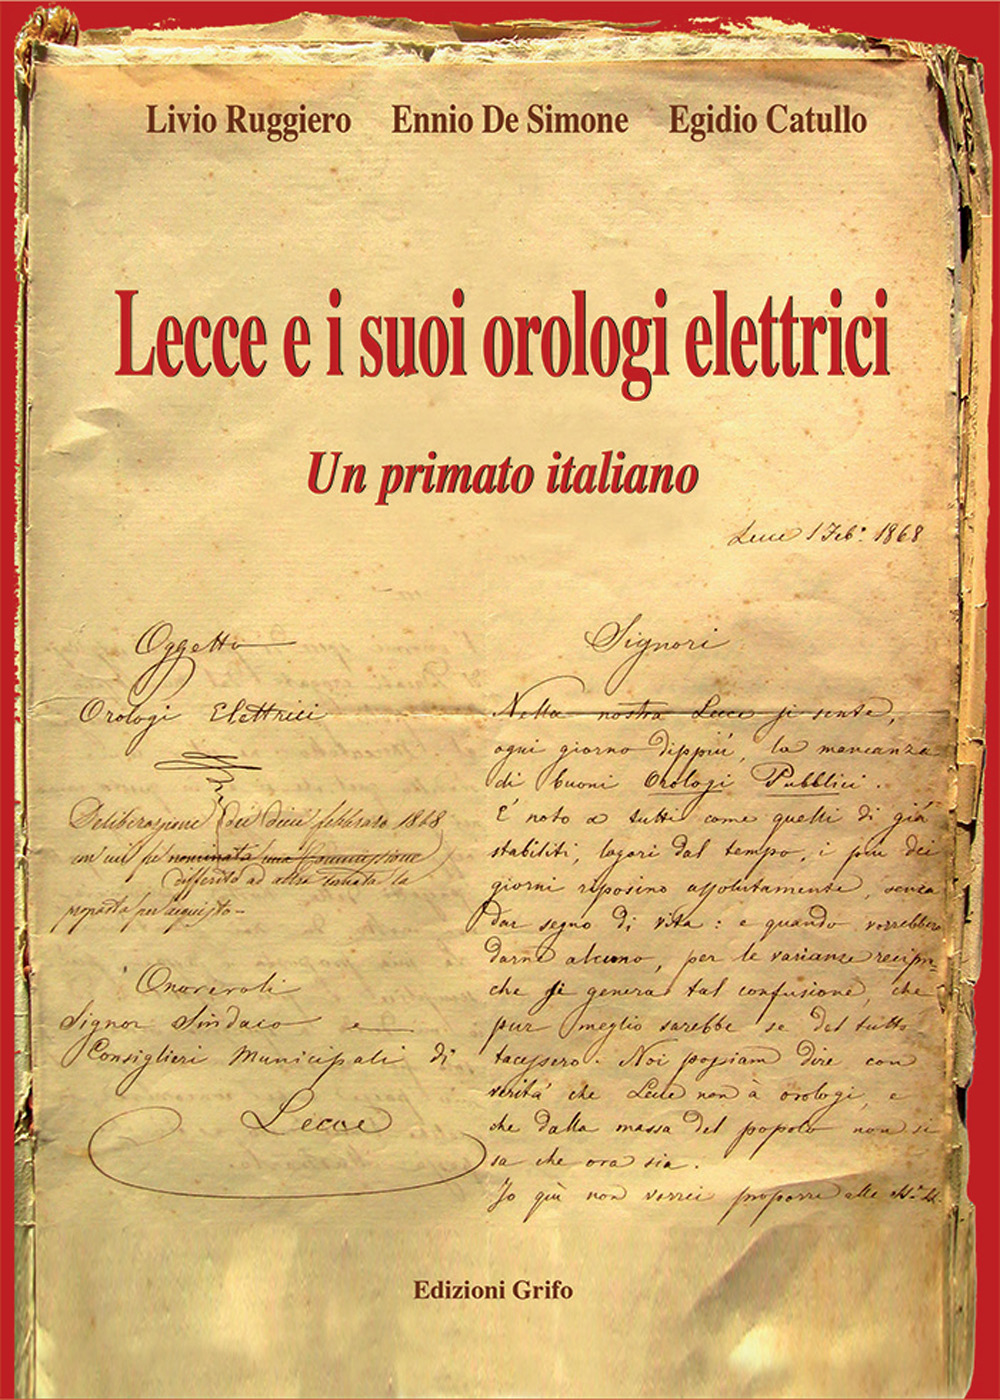 Livio Ruggiero Ennio De Simone Egidio Catullo
Lecce e i suoi orologi elettrici
Un primato italiano
Lecce 1 Feb.° 1868
Oggetto
Orologi Elettrici
Deliberazione del dieci febbraro 1868
con cui si nominata una Commissione
differita ad altra tornata la
proposta per acquisto
Onorevoli
Signor Sindaco e
Consiglieri Municipali di
Lecce
Signori
Nella nostra Lecce si sente,
ogni giorno dippiù, la mancanza
di buoni Orologi Pubblici.
È noto a tutti come quelli di già
stabiliti, logori dal tempo, i più dei
giorni riposino assolutamente, senza
dar segno di vita: e quando vorrebbero
darne alcuno, per le varianze recipro-
che si genera tal confusione, che
pur meglio sarebbe se del tutto
tacessero. Noi possiam dire con
verità che Lecce non à orologi, e
che dalla massa del popolo non si
sa che ora sia.
Io quì non verrei proporre alle
Edizioni Grifo